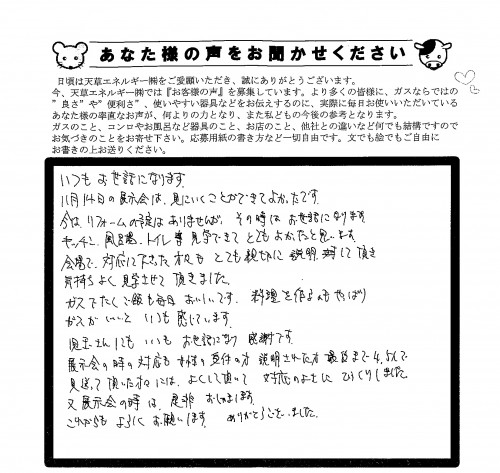 あなた様の声をお聞かせください
日頃は天草エネルギー㈱をご愛顧いただき、誠にありがとうございます。
今、天草エネルギー㈱では『お客様の声』を募集しています。より多くの皆様に、ガスならではの
”良さ”や”便利さ”、使いやすい器具などをお伝えするのに、実際に毎日お使いいただいている
あなた様の率直なお声が、何よりの力となり、また私どもの今後の参考となります。
ガスのこと、コンロやお風呂など器具のこと、お店のこと、他社との違いなど何でも結構ですので
お気づきのことをお寄せ下さい。応募用紙の書き方など一切自由です。文でも絵でもご自由に
お書きの上お送りください。
いつもお世話になります。
11月14日の展示会は、見にいくことができてよかったです。
今は、リフォームの予定はありませんが、その時はお世話になります。
キッチン、風呂場、トイレ等見学できてとてもよかったと思います。
会場で、対応して下さった方々もとても親切に説明して頂き
気持ちよく見学させて頂きました。
ガスでたくご飯も毎日おいしいです。料理を作るのもやっぱり
ガスがいいといつも感じています。
さんにもいつもお世話になり感謝です。
展示会の時の対応も女性の受付の方説明された方最後まで
見送って頂いた方々には、よくして頂いて対応のよさにびっくりしました
又展示会の時は、是非おじゃまします。
これからもよろしくお願いします。ありがとうございました。